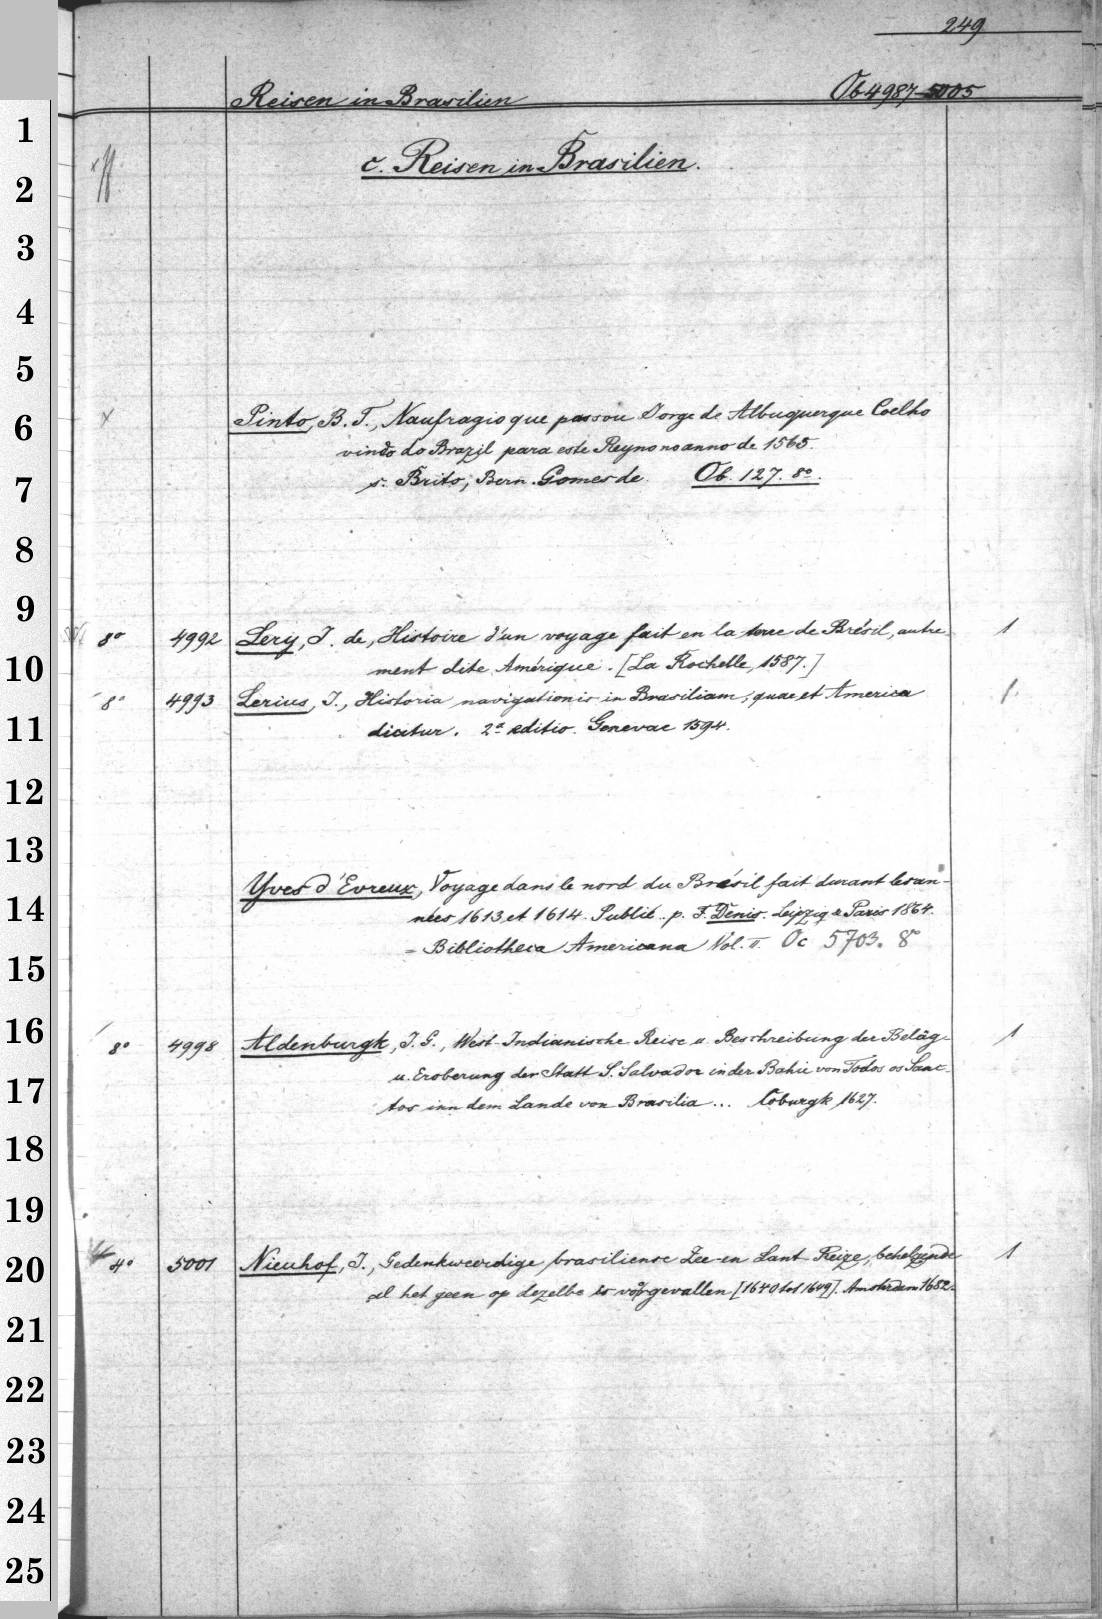 249
Reisen in Brasilien Ob 4987-5005
1
c. Reisen in Brasilien.
2
3
4
5
6 Pinto, B. T., Naufragio que passou Jorge de Albuquerque Coelho
vindo do Brazil para este Reyno no anno de 1565.
7 s. Brito, Bern. Gomes de. Ob. 127. 8º.
8
9
8º 4992 Lery, J. de, Histoire d'un voyage fait en la terre de Brésil, autre-
10 ment dite Amérique. [La Rochelle, 1587.] 1
8º 4993 Lerius, J., Historia navigationis in Brasiliam, quae et America 1.
11 dicitur. 2ª editio. Genevae 1594.
12
13
14 Yves d'Evreux, Voyage dans le nord du Brésil fait durant les an-
nées 1613 et 1614. Publié p. F. Denis. Leipzig & Paris 1864.
15 = Bibliotheca Americana Vol. II. Oc 5703. 8º
16 8º 4998 Aldenburgk, J. G., West-Indianische Reise u. Beschreibung der Beläg- 1
17 u. Eroberung der Statt S. Salvador in der Bahie von Todos os Sanc-
tos inn dem Lande von Brasilia... Coburgk 1627.
18
19
20 4º 5001 Nieuhof, J., Gedenkweerdige brasiliense Zee- en Lant-Reize, behelzende 1
al het geen op dezelbe is voorgevallen [1640 tot 1649]. Amsterdam 1682.
21
22
23
24
25